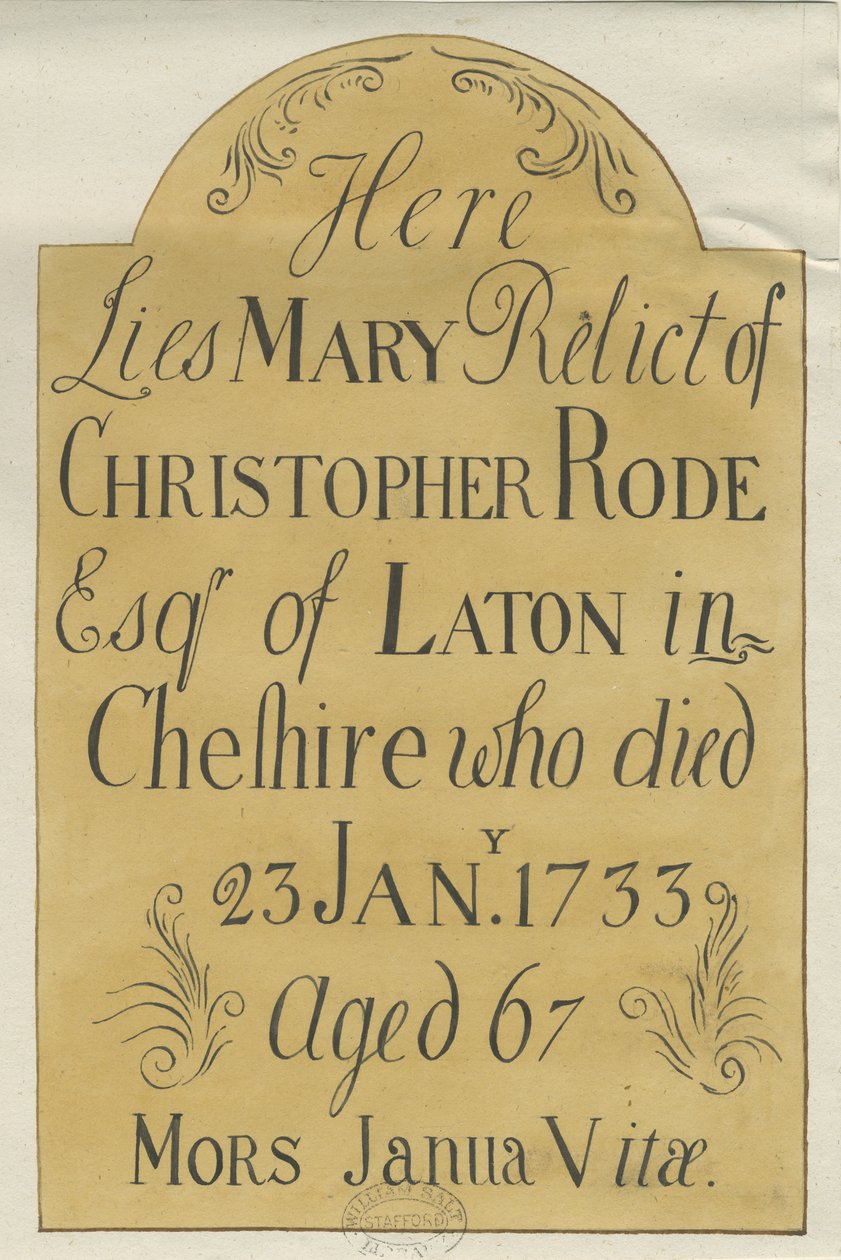 Here
Lies MARY Relict of
CHRISTOPHER RODE
Esqr of LATON in
Cheſhire who died
23 JANY. 1733
Aged 67
MORS Janua Vitæ.
WILLIAM SALT
STAFFORD